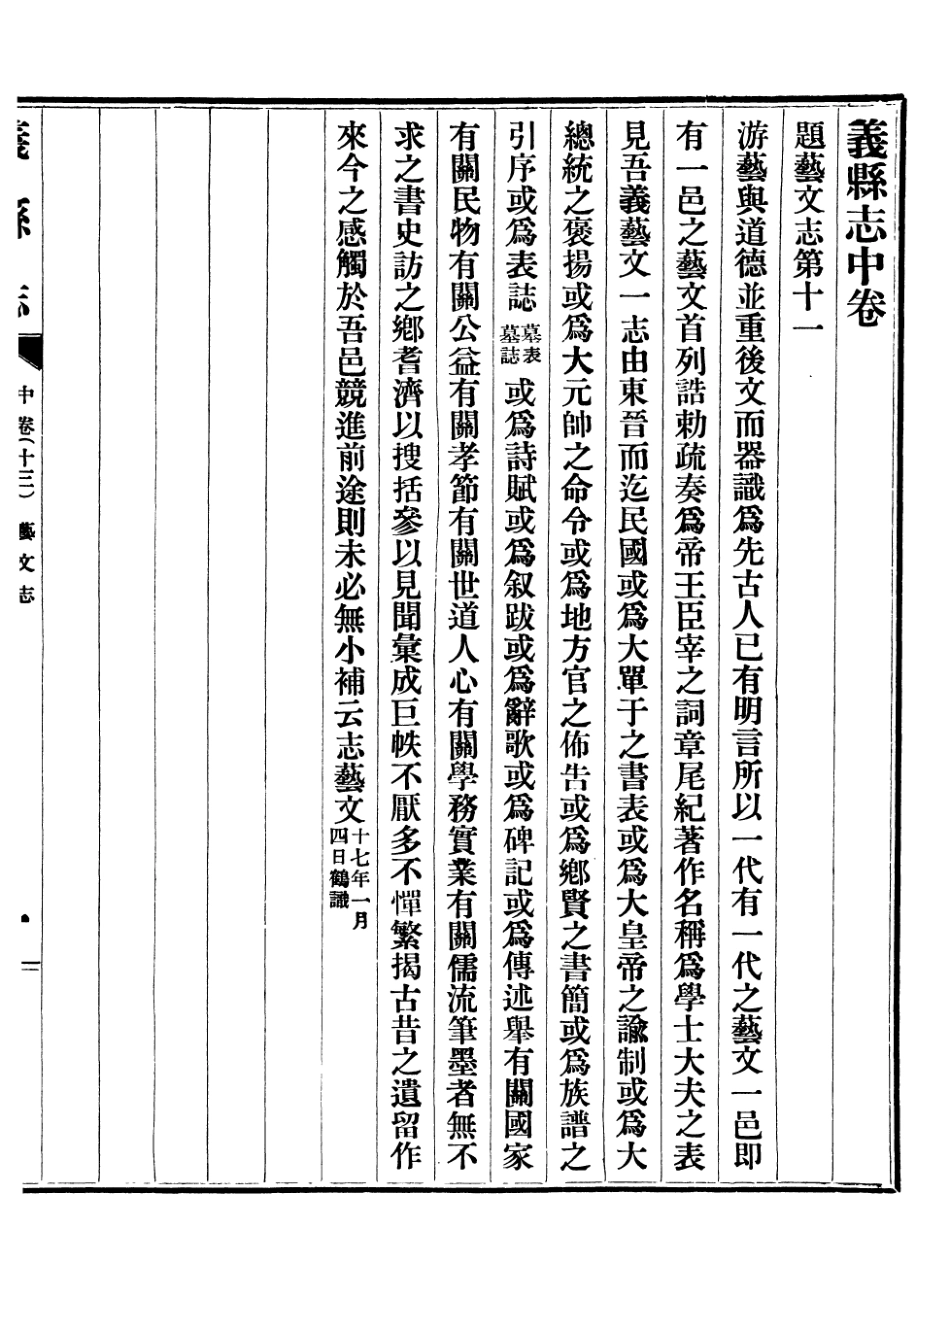 義縣志中卷
題藝文志第十一
游藝與道德並重後文而器識爲先古人已有明言所以一代有一代之藝文一邑即
有一邑之藝文首列誥勅疏奏爲帝王臣宰之詞章尾紀著作名稱爲學士大夫之表
見吾義藝文一志由東晉而迄民國或爲大單于之書表或爲大皇帝之諭制或爲大
總統之褒揚或爲大元帥之命令或爲地方官之佈告或爲鄉賢之書簡或爲族譜之
引序或爲表誌墓表墓誌或爲詩賦或爲叙跋或爲辭歌或爲碑記或爲傳述舉有關國家
有關民物有關公益有關孝節有關世道人心有關學務實業有關儒流筆墨者無不
求之書史訪之鄉耆濟以搜括參以見聞彙成巨帙不厭多不憚繁揭古昔之遺留作
來今之感觸於吾邑競進前途則未必無小補云志藝文十七年一月四日鶴識
義縣志 中卷(十三) 藝文志 一